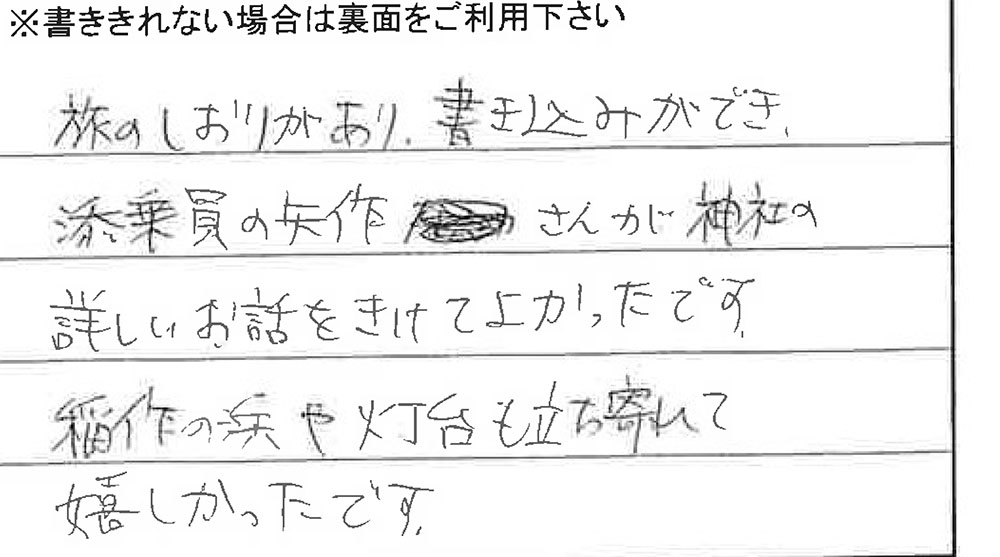 ※書ききれない場合は裏面をご利用下さい
旅のしおりがあり、書き込みができ、
添乗員の矢作さんが神社の
詳しいお話をきけてよかったです。
稲作の浜や灯台も立ち寄れて
嬉しかったです。